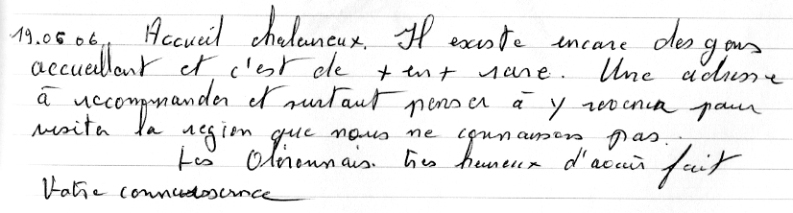 19.06.06. Accueil chaleureux. Il existe encore des gens
accueillant et c'est de + en + rare. Une adresse
à recommander et surtout penser à y revenir pour
visiter la région que nous ne connaissons pas.
Les Oléronnais. très heureux d'avoir fait
Votre connaissance